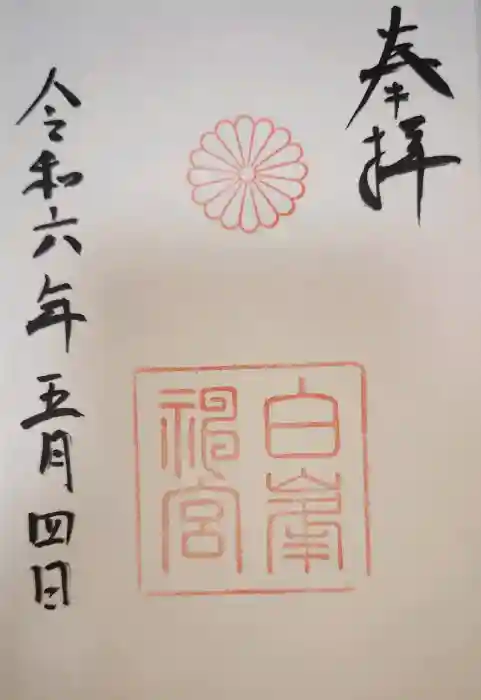 奉拝
白峯
神宮
令和六年五月四日